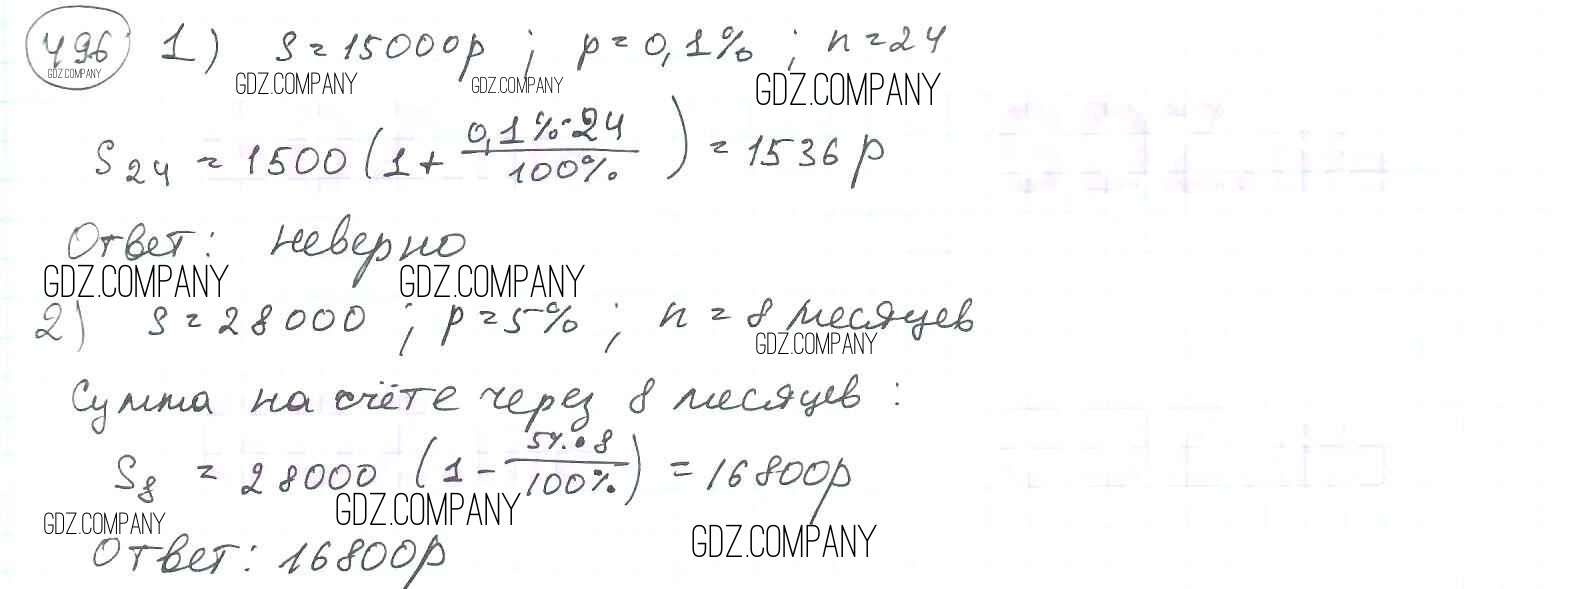 496 1) S = 15000р ; р = 0,1% ; n = 24
GDZ.COMPANY GDZ.COMPANY GDZ.COMPANY GDZ.COMPANY
S24 = 1500 (1 + 0,1%·24 / 100%) = 1536 р
Ответ: неверно
GDZ.COMPANY GDZ.COMPANY
2) S = 28000 ; р = 5% ; n = 8 месяцев
GDZ.COMPANY
Сумма на счёте через 8 месяцев :
S8 = 28000 (1 - 5%·8 / 100%) = 16800р
GDZ.COMPANY GDZ.COMPANY GDZ.COMPANY
Ответ: 16800р